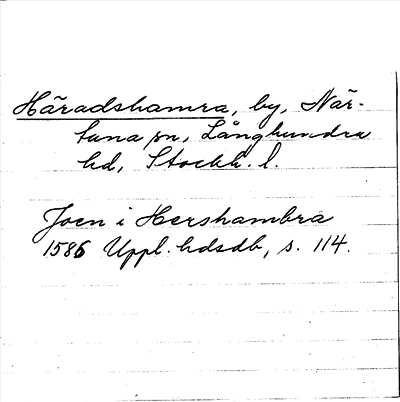 Häradshamra, by, När-
tuna sn, Långhundra
hd, Stockh. l.
Joen i Hershambra
1586 Uppl. hdsdb, s. 114.